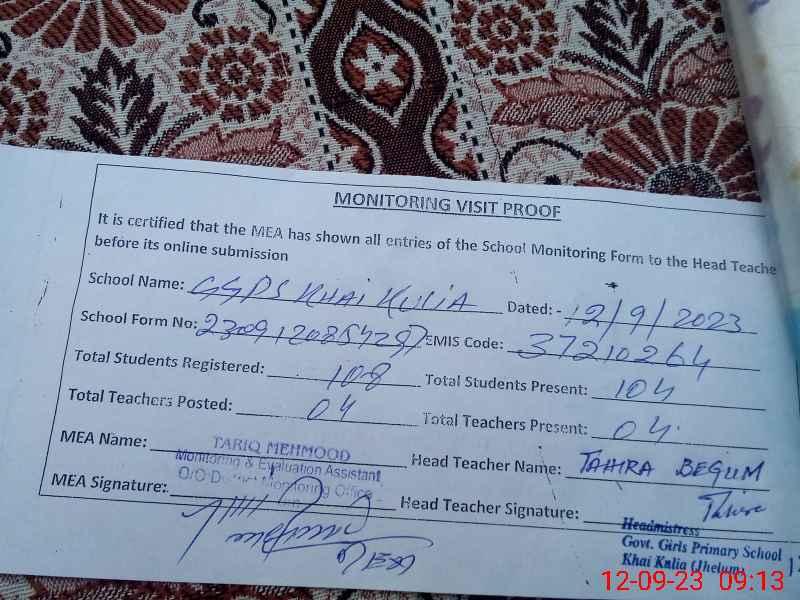 MONITORING VISIT PROOF
It is certified that the MEA has shown all entries of the School Monitoring Form to the Head Teache
before its online submission
School Name: GGPS KHAI KULIA Dated: - 12/9/2023
School Form No: EMIS Code: 37210264
Total Students Registered: 108 Total Students Present: 104
Total Teachers Posted: 04 Total Teachers Present: 04
MEA Name: TARIQ MEHMOOD Head Teacher Name: TAHIRA BEGUM
Monitoring & Evaluation Assistant
O/O District Monitoring Office
MEA Signature: Head Teacher Signature:
Headmistress
Govt. Girls Primary School
Khai Kulia (Jhelum)
12-09-23 09:13